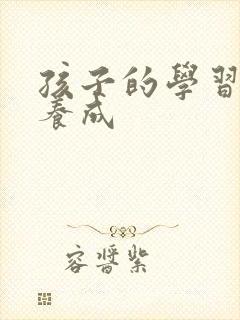 孩子的學習
養成
容醬紫